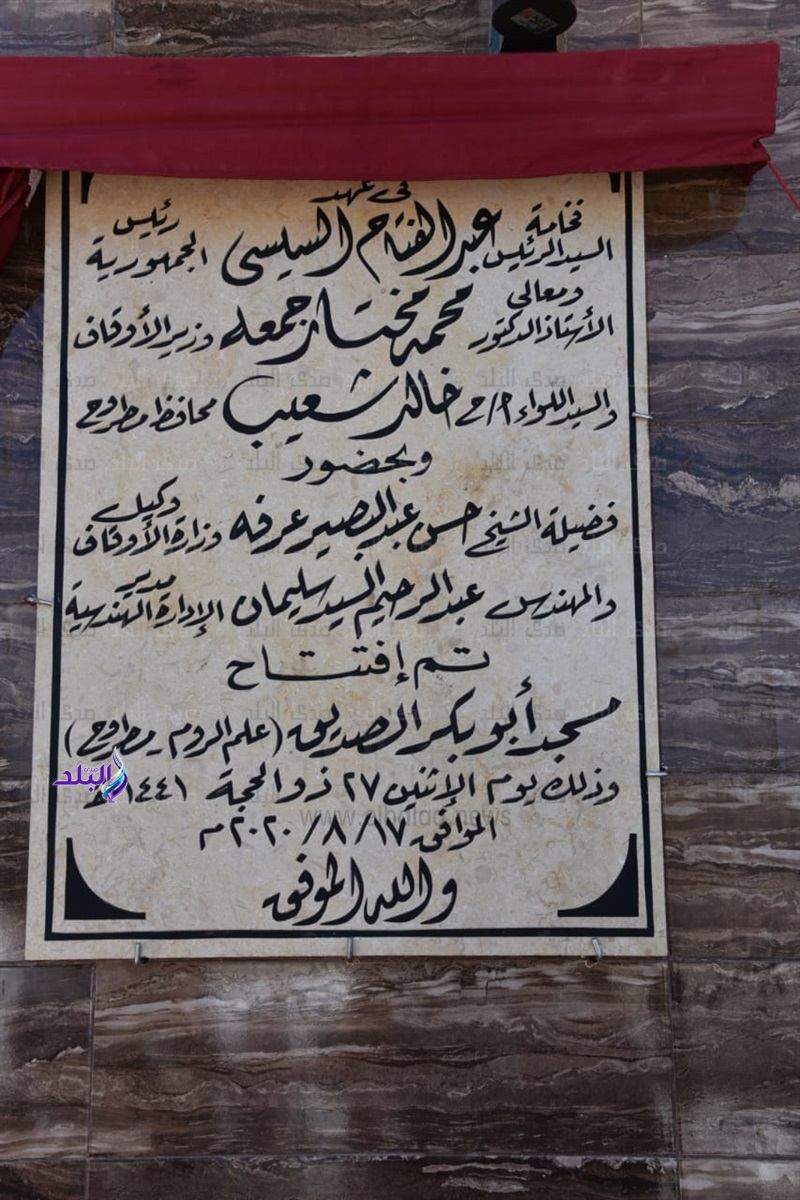 في عهد
فخامة السيد الرئيس عبد الفتاح السيسي رئيس الجمهورية
ومعالي الأستاذ الدكتور محمد مختار جمعه وزير الأوقاف
والسيد اللواء ا/ح خالد شعيب محافظ مطروح
وبحضور
فضيلة الشيخ حسن عبد البصير عرفه وكيل وزارة الأوقاف
والمهندس عبد الرحيم السيد سليمان مدير الإدارة الهندسية
تم إفتتاح
مسجد أبو بكر الصديق (علم الروم - مطروح)
وذلك يوم الإثنين ٢٧ ذو الحجة ١٤٤١ هـ
الموافق ١٧/ ٨/ ٢٠٢٠م
والله الموفق
صدى البلد
www.elbalad.news